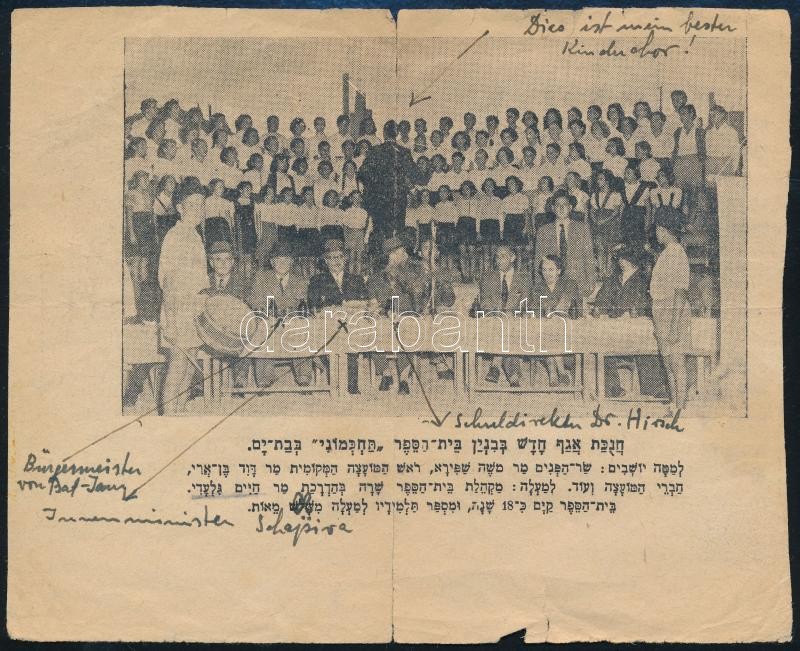 Dies ist mein bester
Kinderchor!
darabanth
Schuldirektor Dr. Hirsch
חֲנֻכַּת אֲגַף חָדָשׁ בְּבִנְיַן בֵּית־הַסֵּפֶר „תַּחְכְּמוֹנִי” בְּבַת־יָם.
לְמַטָּה יוֹשְׁבִים: שַׂר־הַפְּנִים מַר מֹשֶׁה שַׁפִּירָא, רֹאשׁ הַמּוֹעָצָה הַמְּקוֹמִית מַר דָּוִד בֶּן־אֲרִי,
חַבְרֵי הַמּוֹעָצָה וְעוֹד. לְמַעְלָה: מַקְהֵלַת בֵּית־הַסֵּפֶר שָׁרָה בְּהַדְרָכַת מַר חַיִּים גִּלְעָדִי.
בֵּית־הַסֵּפֶר קַיָּם כ־18 שָׁנָה, וּמִסְפַּר תַּלְמִידָיו לְמַעְלָה מִשְּׁלֹשׁ מֵאוֹת.
Bürgermeister
von Bat-Jam
Innenminister Schapira